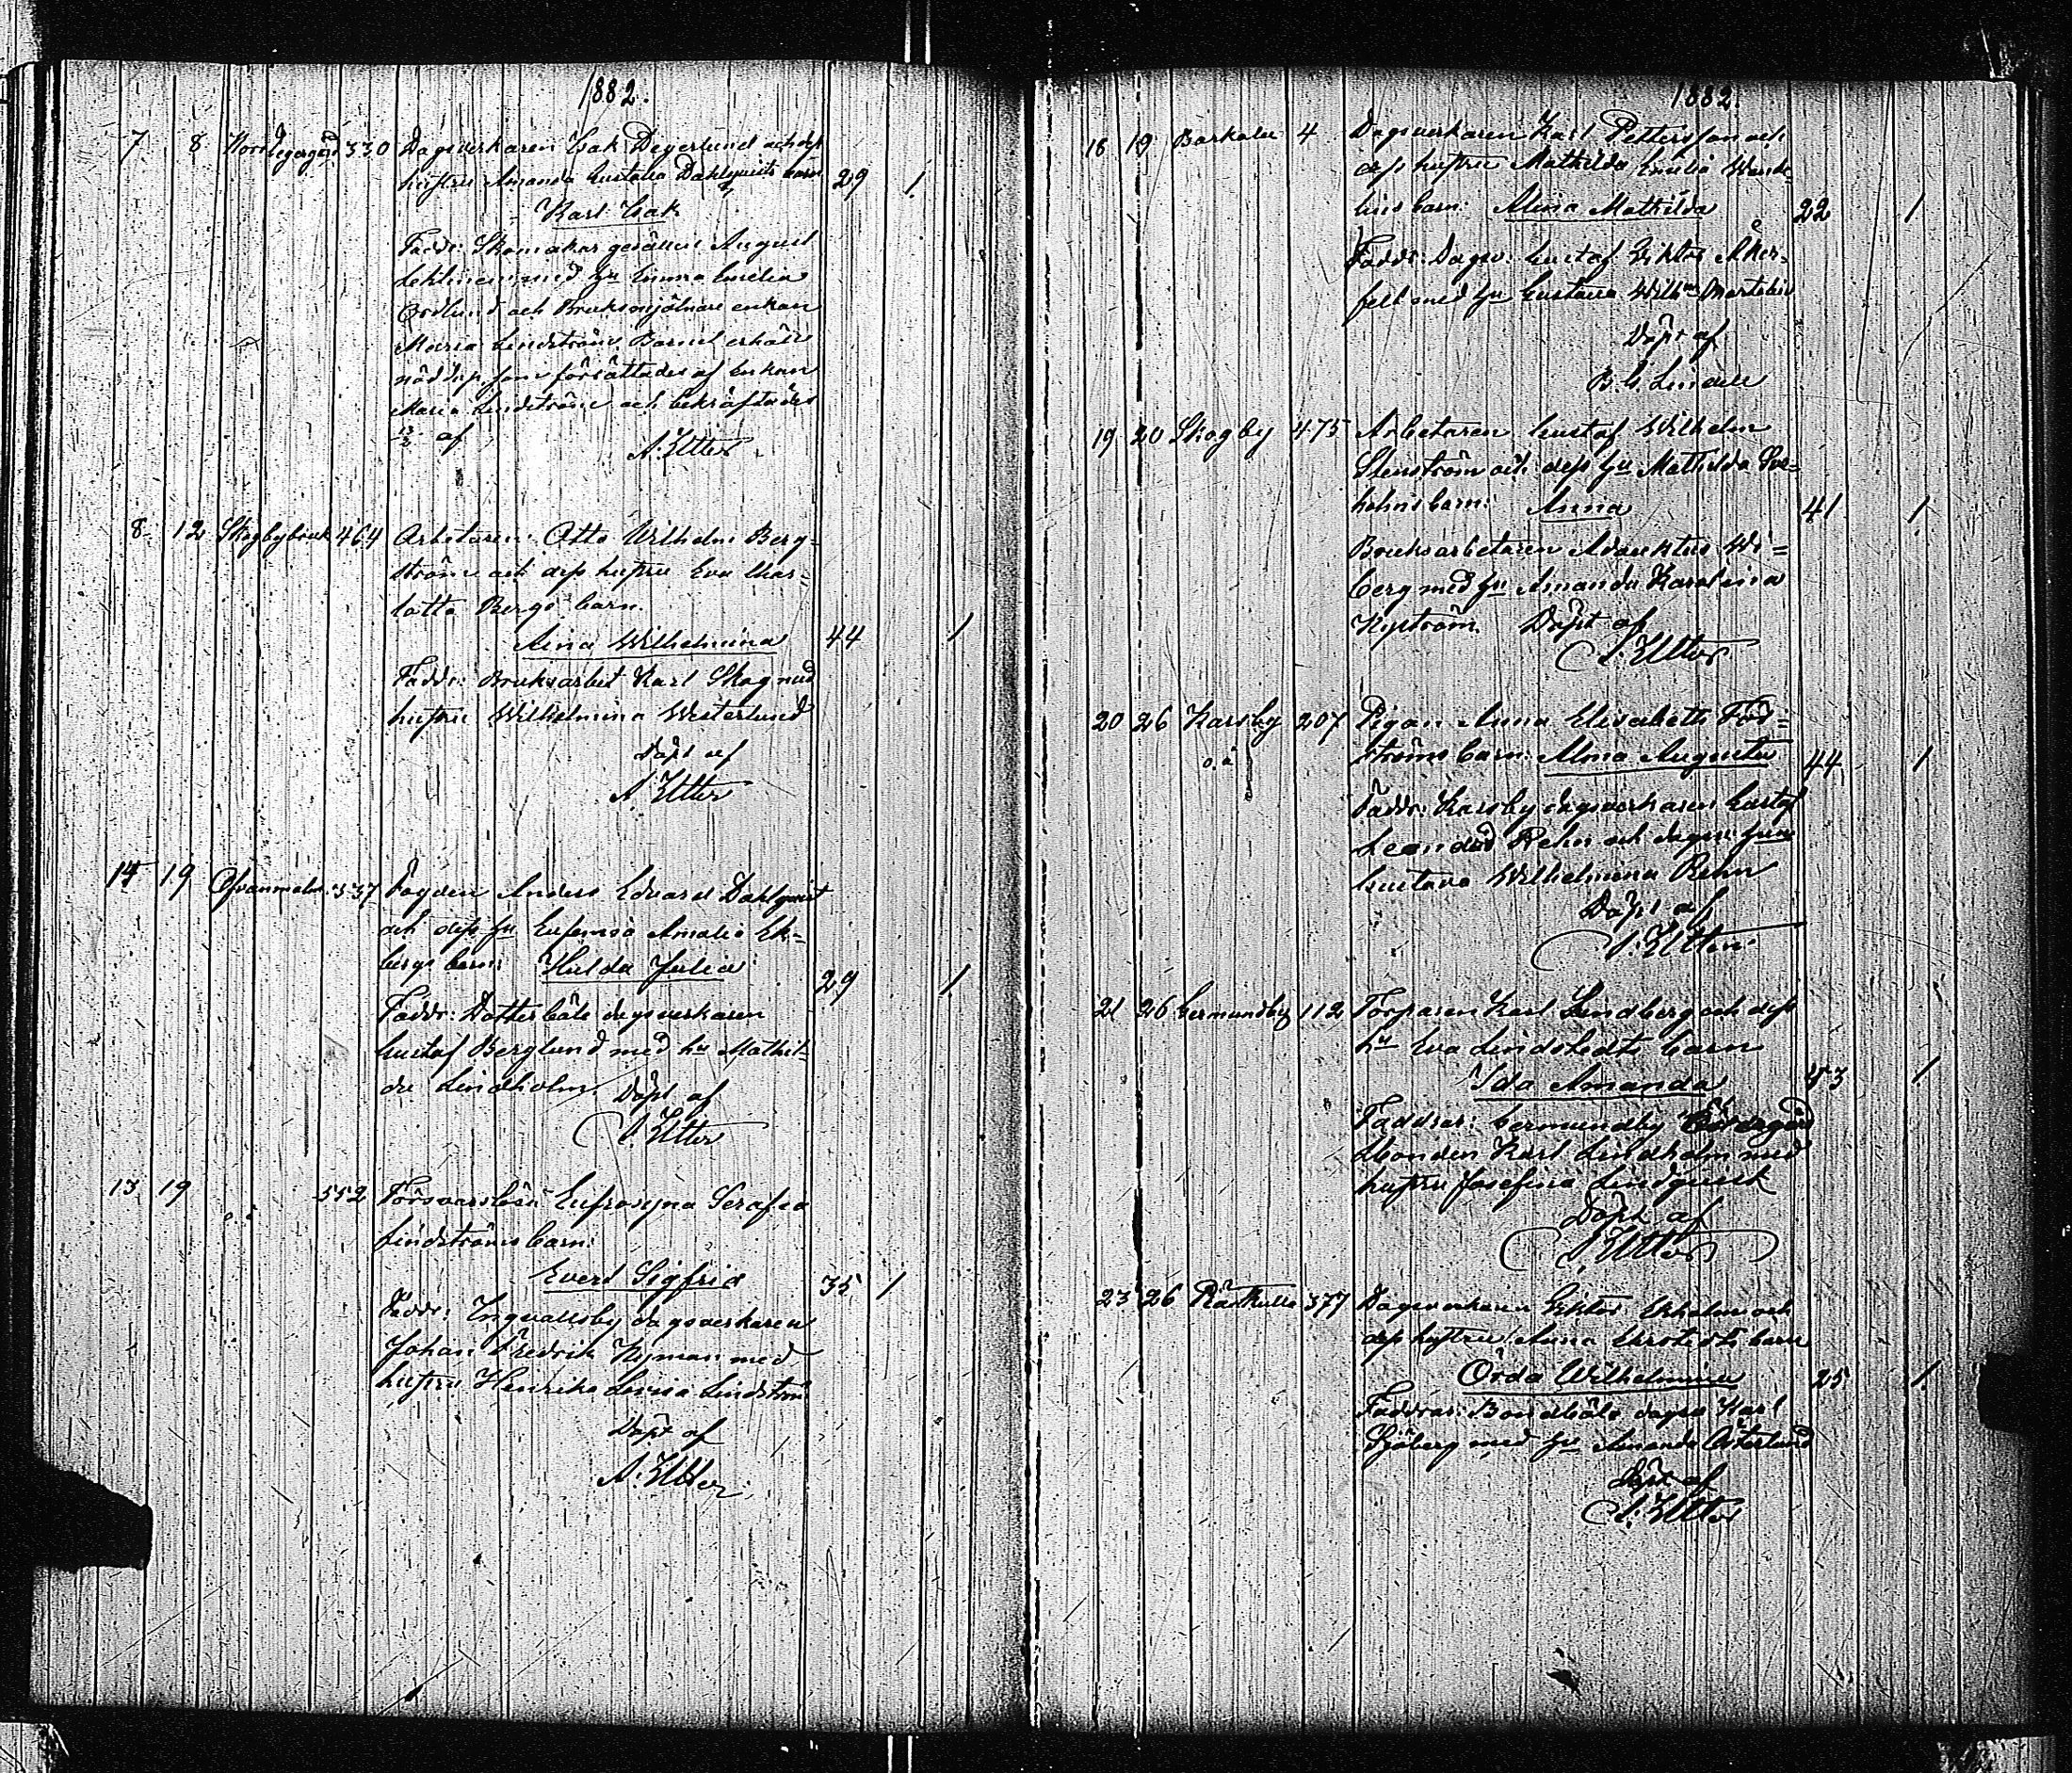 1882.
7 8 Norrdegergård 330 Dagsverkaren Isak Degerlund och dess
hustru Amanda Gustava Dahlqvists barn 29 1
Karl Isak
Faddr: Skomakar gesällen August
Lehtinen med hu Emma Emelia
Ordlund och Bruksmjölnare enkan
Maria Lindström. Barnet erhöll
nöddop som förrättades af Enkan
Maria Lindström och bekräftades
13/2 af A. Etter
8 12 Skogbybruk 464 Arbetaren Otto Wilhelm Berg=
ström och dess hustru Eva Char=
lotta Bergs barn.
Aina Wilhelmina 44 1
Faddr: Bruksarbet Karl Skog med
hustru Wilhelmina Westerlund
Döpt af
A. Etter
14 19 Öfvanmalm 337 Fogden Anders Edvard Dahlqvist
och dess hu Eufemia Amalia Ek=
bergs barn: Hulda Julia 29 1
Faddr: Dotterböle dagsverkaren
Gustaf Berglund med hu Mathil=
da Lindholm. Döpt af
A. Etter
13 19 552 Försvarslösa Eufrosyna Serafia
Lindströms barn:
Evert Sigfrid 35 1
Faddr: Ingvallsby dagsverkaren
Johan Fredrik Nyman med
hustru Henrika Lovisa Lindström
Döpt af
A. Etter
1882.
18 19 Baskale 4 Dagsverkaren Karl Pettersson och
dess hustru Mathilda Emilia Wende=
lins barn: Alma Mathilda 22 1
Faddr: Dagsv. Gustaf Viktor Åker=
felt med hu Gustava Wilhma Martelin
Döpt af
B. G. Lindell
19 20 Skogby 475 Arbetaren Gustaf Wilhelm
Stenström och dess hu Mathilda Sve=
holms barn: Anna 41 1
Bruksarbetaren Adauktus Wi=
berg med hu Amanda Karolina
Nyström. Döpt af
A. Etter
20 26 Karsby 207 Pigan Anna Elisabeth Fors=
ströms barn: Alma Augusta 44 1
o.ä
Faddr: Karsby dagsverkaren Gustaf
Leander Rehn och dagsv. hu
Gustava Wilhelmina Rehn
Döpt af
A. Etter
21 26 Germundby 112 Torparen Karl Lindberg och dess
hu Eva Lindstedts barn
Ida Amanda 43 1
Faddrar: Germundby Södergård
bonden Karl Lindholm med
hustru Josefina Lindqvist
Döpt af
A. Etter
23 26 Råckulla 377 Dagsverkaren Viktor Ekholm och
dess hustru Anna Errstedts barn
Orda Wilhelmina 25 1
Faddrar: Bondböle dagsv Karl
Sjöberg med hu Amanda Österlund
Döpt af
A. Etter